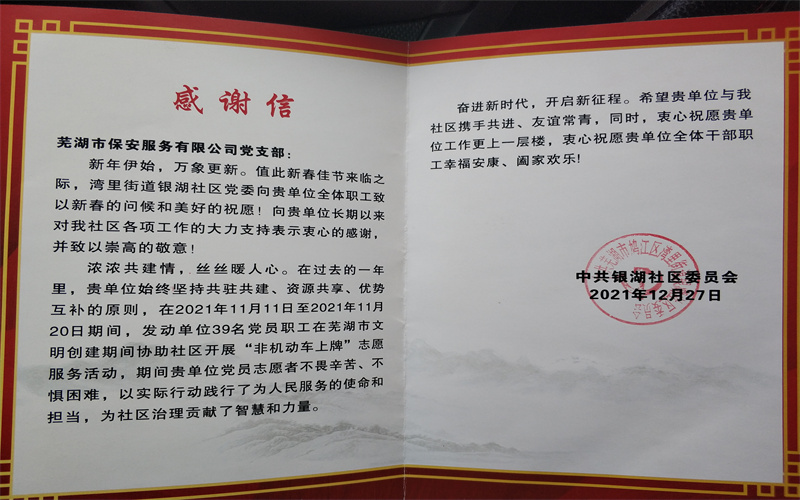 感谢信
芜湖市保安服务有限公司党支部：
新年伊始，万象更新。值此新春佳节来临之
际，湾里街道银湖社区党委向贵单位全体职工致
以新春的问候和美好的祝愿！向贵单位长期以来
对我社区各项工作的大力支持表示衷心的感谢，
并致以崇高的敬意！
浓浓共建情，丝丝暖人心。在过去的一年
里，贵单位始终坚持共驻共建、资源共享、优势
互补的原则，在2021年11月11日至2021年11月
20日期间，发动单位39名党员职工在芜湖市文
明创建期间协助社区开展“非机动车上牌”志愿
服务活动，期间贵单位党员志愿者不畏辛苦、不
惧困难，以实际行动践行了为人民服务的使命和
担当，为社区治理贡献了智慧和力量。
奋进新时代，开启新征程。希望贵单位与我
社区携手共进、友谊常青，同时，衷心祝愿贵单
位工作更上一层楼，衷心祝愿贵单位全体干部职
工幸福安康、阖家欢乐!
中共银湖社区委员会
2021年12月27日